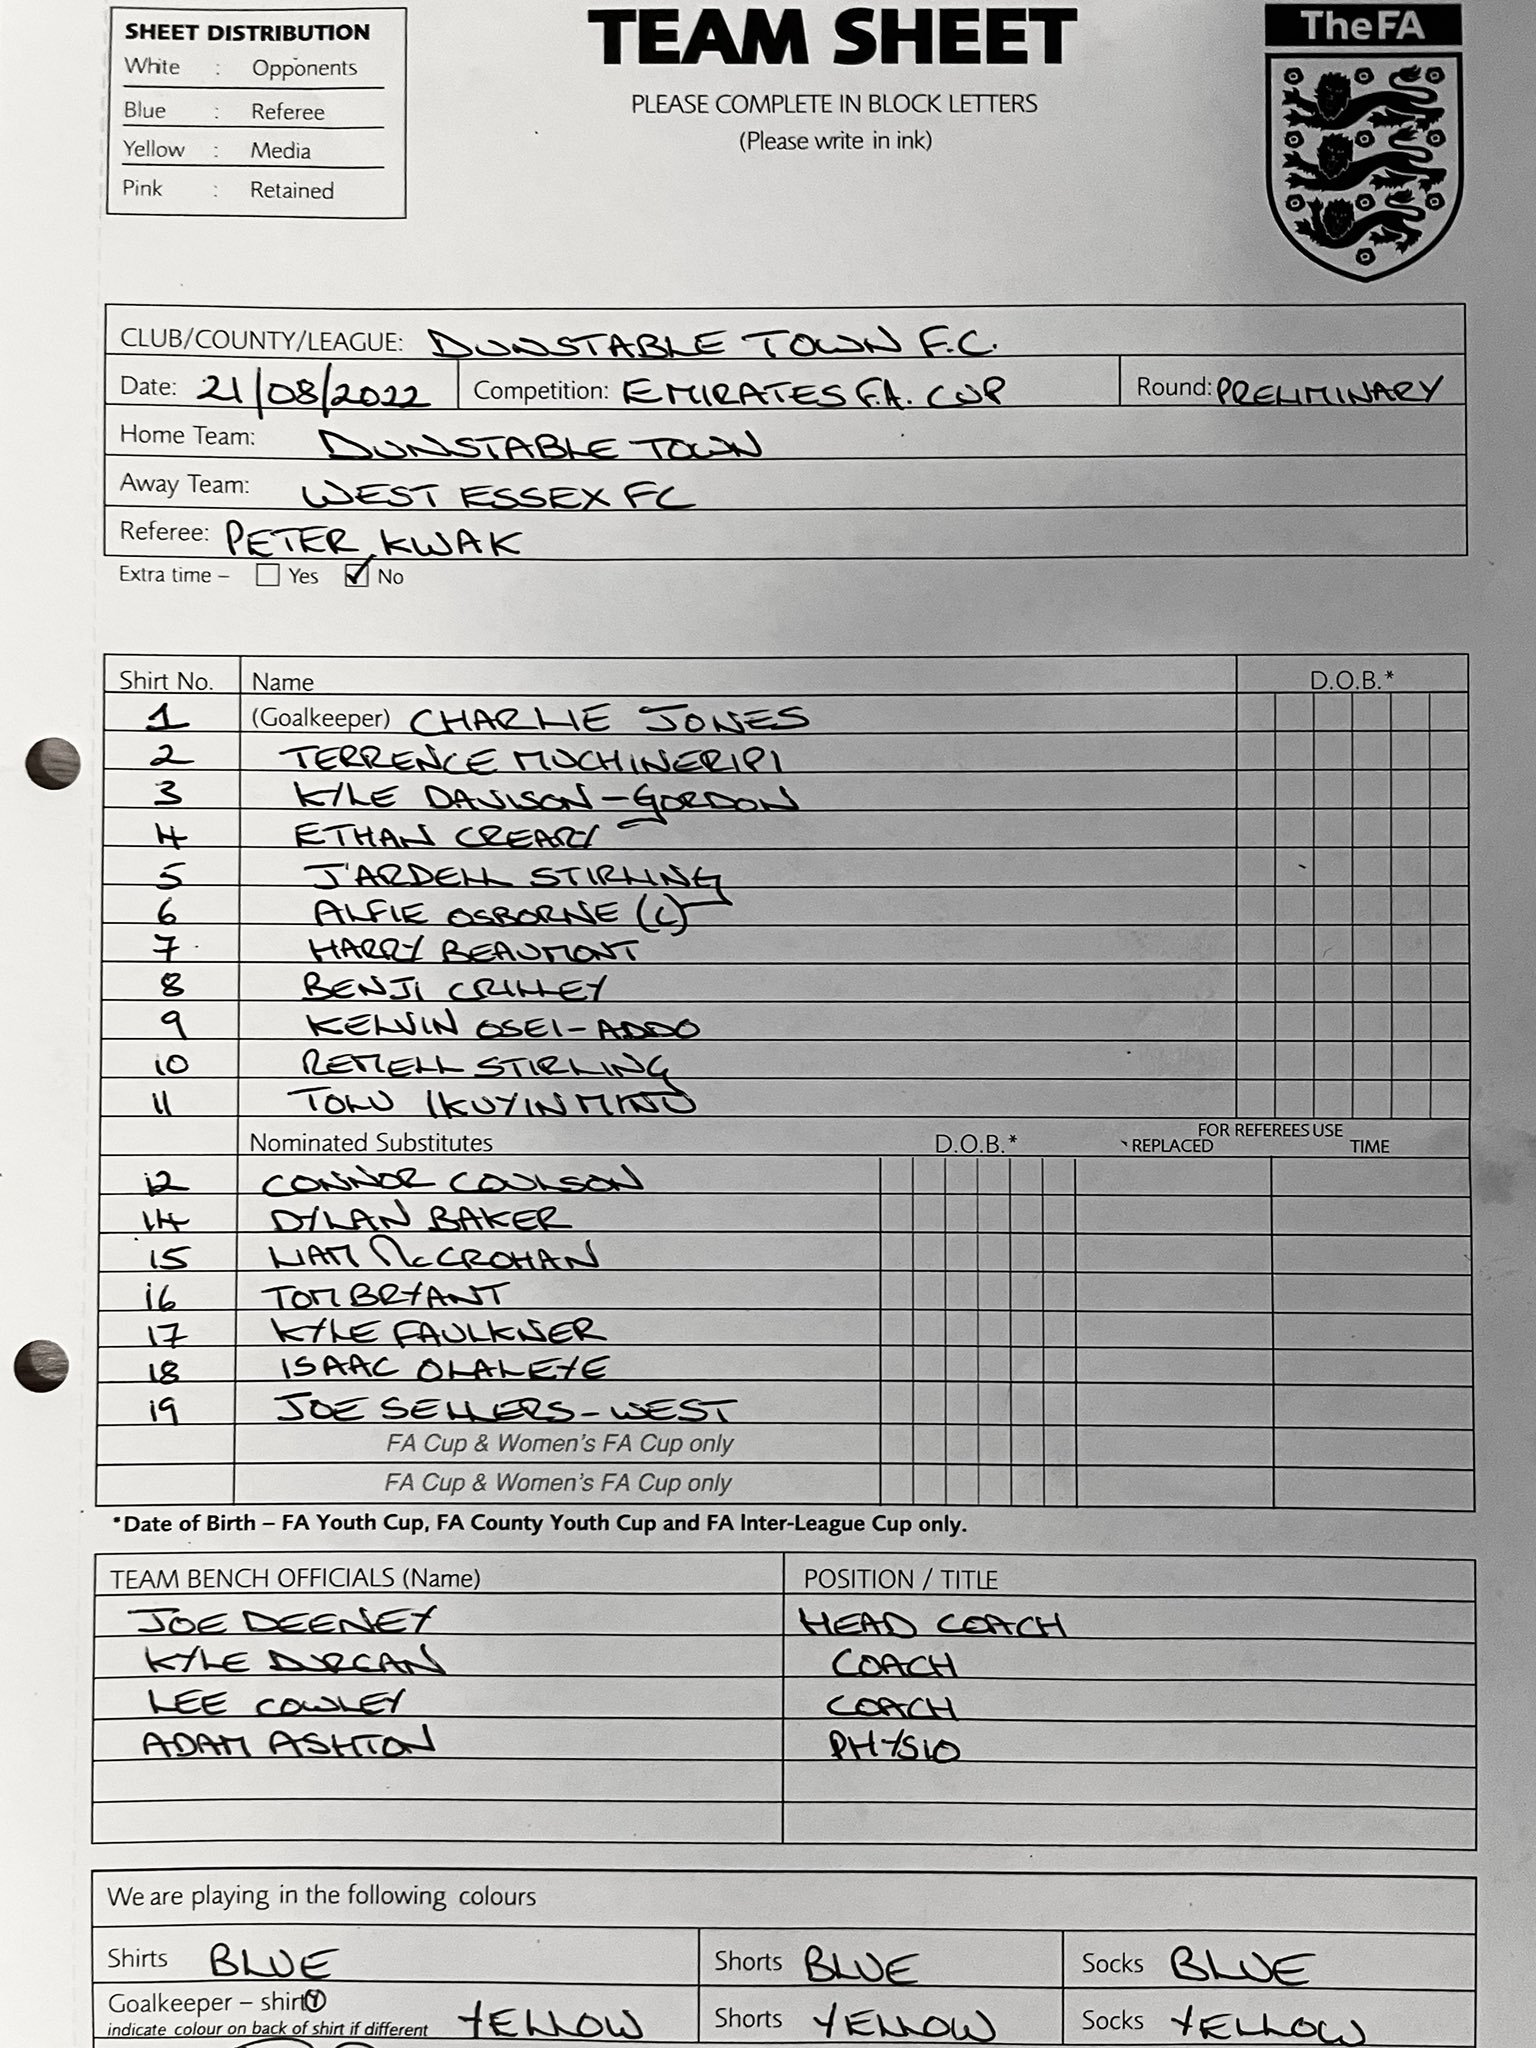 SHEET DISTRIBUTION
White : Opponents
Blue : Referee
Yellow : Media
Pink : Retained
TEAM SHEET
PLEASE COMPLETE IN BLOCK LETTERS
(Please write in ink)
TheFA
CLUB/COUNTY/LEAGUE: DUNSTABLE TOWN F.C.
Date: 21/08/2022 Competition: EMIRATES F.A. CUP Round: PRELIMINARY
Home Team: DUNSTABLE TOWN
Away Team: WEST ESSEX FC
Referee: PETER KWAK
Extra time – Yes No
Shirt No. Name D.O.B.*
1 (Goalkeeper) CHARLIE JONES
2 TERRENCE MUCHINERIPI
3 KYLE DAVISON-GORDON
4 ETHAN CREARY
5 J'ARDELL STIRLING
6 ALFIE OSBORNE (C)
7 HARRY BEAUMONT
8 BENJI CRILLEY
9 KELVIN OSEI-ADDO
10 REMELL STIRLING
11 TOLU IKUYINMINU
Nominated Substitutes D.O.B.* FOR REFEREES USE
REPLACED TIME
12 CONNOR COULSON
14 DYLAN BAKER
15 LIAM McCROHAN
16 TOM BRYANT
17 KYLE FAULKNER
18 ISAAC OLALEYE
19 JOE SELLERS-WEST
FA Cup & Women's FA Cup only
FA Cup & Women's FA Cup only
*Date of Birth – FA Youth Cup, FA County Youth Cup and FA Inter-League Cup only.
TEAM BENCH OFFICIALS (Name) POSITION / TITLE
JOE DEENEY HEAD COACH
KYLE DURCAN COACH
LEE COWLEY COACH
ADAM ASHTON PHYSIO
We are playing in the following colours
Shirts BLUE Shorts BLUE Socks BLUE
Goalkeeper – shirt Y YELLOW Shorts YELLOW Socks YELLOW
indicate colour on back of shirt if different